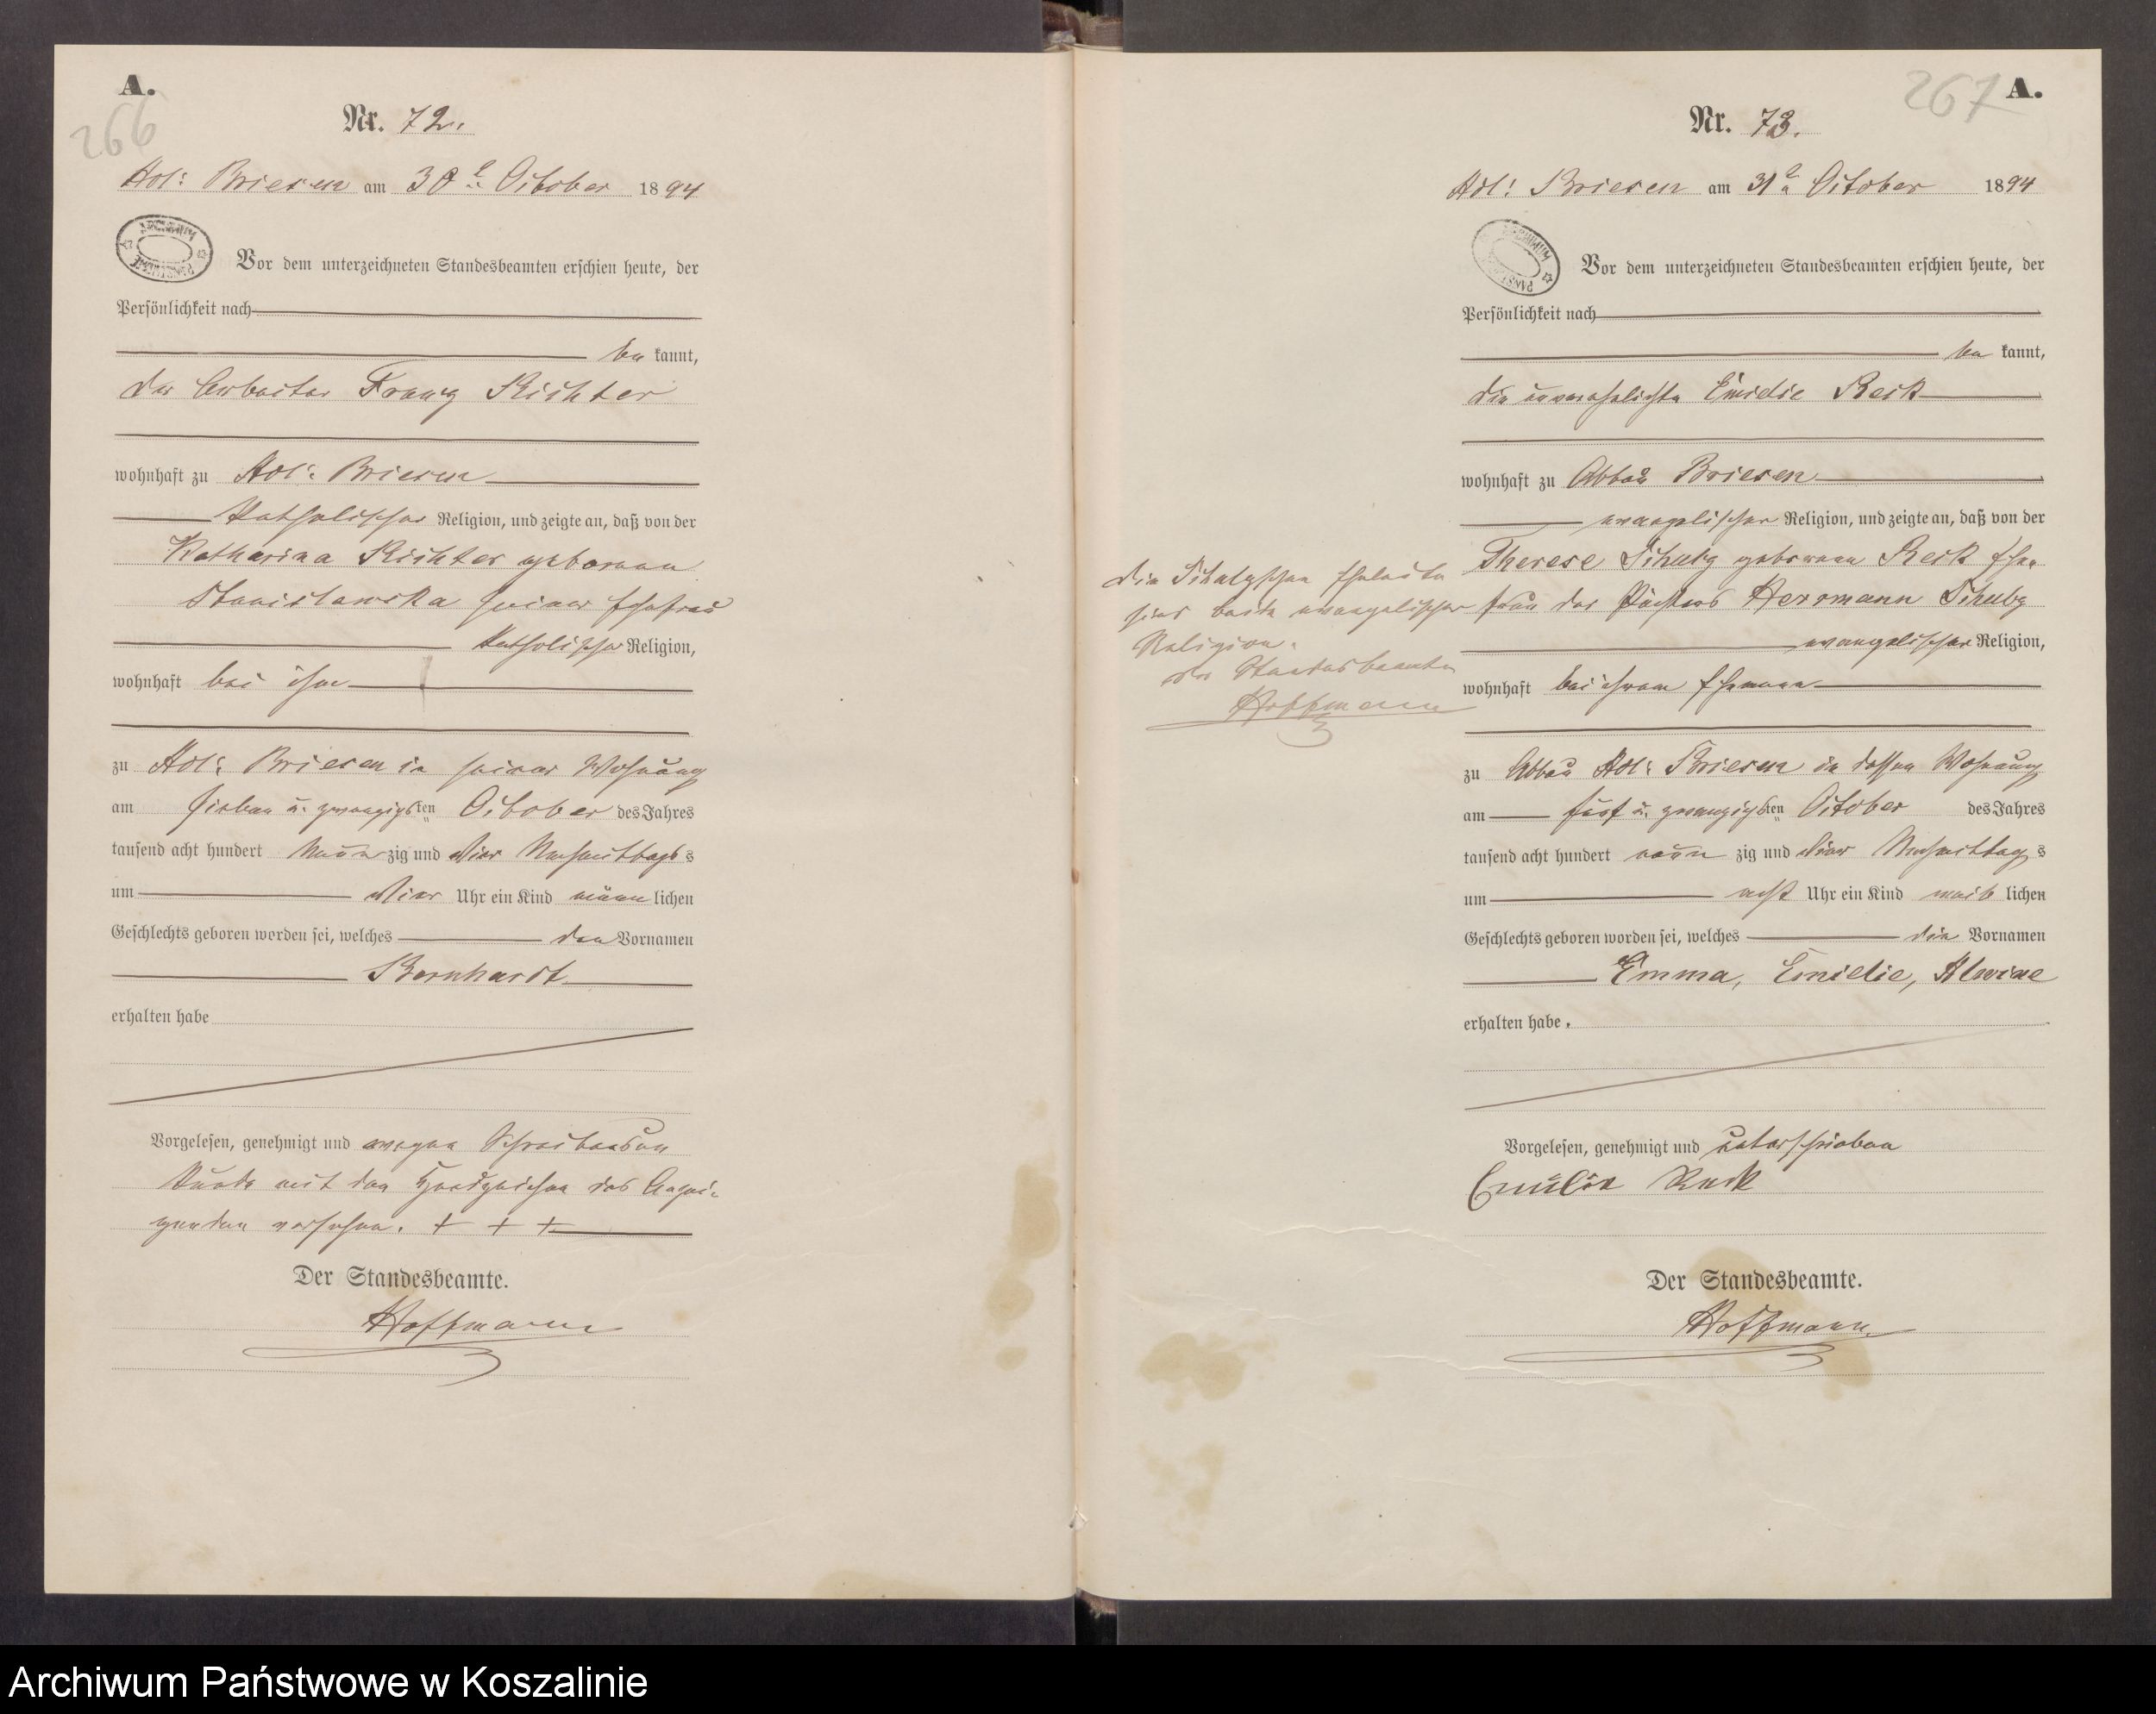 A.
266
Nr. 72.
Adl: Briesen am 30t October 1894
Vor dem unterzeichneten Standesbeamten erschien heute, der
Persönlichkeit nach
be kannt,
der Arbeiter Franz Richter
wohnhaft zu Adl: Briesen
katholischer Religion, und zeigte an, daß von der
Katharina Richter geborenen
Stanislawska seiner Ehefrau
katholischer Religion,
wohnhaft bei ihm
zu Adl: Briesen in seiner Wohnung
am sieben u. zwanzigsten October des Jahres
tausend acht hundert neun zig und vier Nachmittags s
um vier Uhr ein Kind männ lichen
Geschlechts geboren worden sei, welches den Vornamen
Bernhardt
erhalten habe
Vorgelesen, genehmigt und wegen Schreibensun
kunde mit den Handzeichen des Anzei-
genden versehen. + + +
Der Standesbeamte.
Hoffmann
267 A.
Nr. 73.
Adl: Briesen am 31t October 1894
ARCHIWUM
Vor dem unterzeichneten Standesbeamten erschien heute, der
Persönlichkeit nach
be kannt,
die unverehelichte Emilie Reck
wohnhaft zu Abbau Briesen
evangelischer Religion, und zeigte an, daß von der
Therese Schulz geborenen Reck Ehe
frau des Pächters Herrmann Schulz
evangelischer Religion,
wohnhaft bei ihrem Ehemann
zu Abbau Adl: Briesen in dessen Wohnung
am fünf u. zwanzigsten October des Jahres
tausend acht hundert neun zig und vier Nachmittag s
um acht Uhr ein Kind weib lichen
Geschlechts geboren worden sei, welches die Vornamen
Emma, Emilie, Alwine
erhalten habe.
Vorgelesen, genehmigt und unterschrieben
Emilie Reck
Der Standesbeamte.
Hoffmann
Die Schulzschen Eheleute
sind beide evangelischer
Religion.
Der Standesbeamte
Hoffmann
Archiwum Państwowe w Koszalinie